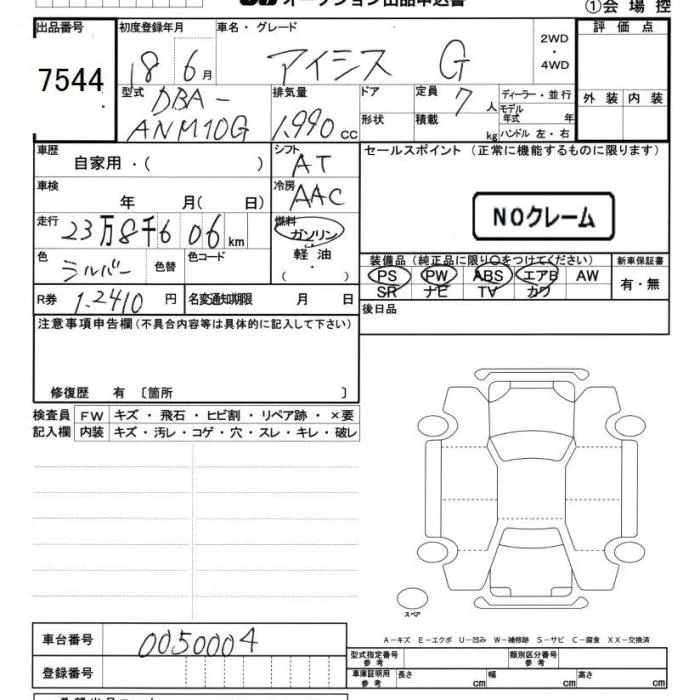 オークション出品申込書
①会場控
出品番号
7544
初度登録年月
18 6月
車名・グレード
アイシス G
2WD
・
4WD
評価点
外装 内装
型式
DBA-
ANM10G
排気量
1,990 cc
ドア
形状
定員 7 人
積載 kg
ディーラー・並行
モデル
年式 年
ハンドル 左・右
車歴
自家用・( )
シフト
AT
セールスポイント (正常に機能するものに限ります)
NOクレーム
車検
年 月( 日)
冷房
AAC
走行
23万8千6 06 km
燃料
ガソリン
軽油
( ・ )
色
シルバー
色替
色コード
装備品(純正品に限り○をつけてください)
PS PW ABS エアB AW
SR ナビ TV カワ
新車保証書
有・無
R券 1,2410 円
名変通知期限 月 日
後日品
注意事項申告欄(不具合内容等は具体的に記入して下さい)
修復歴 有 〔箇所 〕
検査員
記入欄
FW キズ・飛石・ヒビ割・リペア跡・×要
内装 キズ・汚レ・コゲ・穴・スレ・キレ・破レ
スペア
A-キズ E-エクボ U-凹み W-補修跡 S-サビ C-腐食 XX-交換済
車台番号 0050004
登録番号
型式指定番号
参考
類別区分番号
参考
車庫証明用
参考
長さ cm 幅 cm 高さ cm